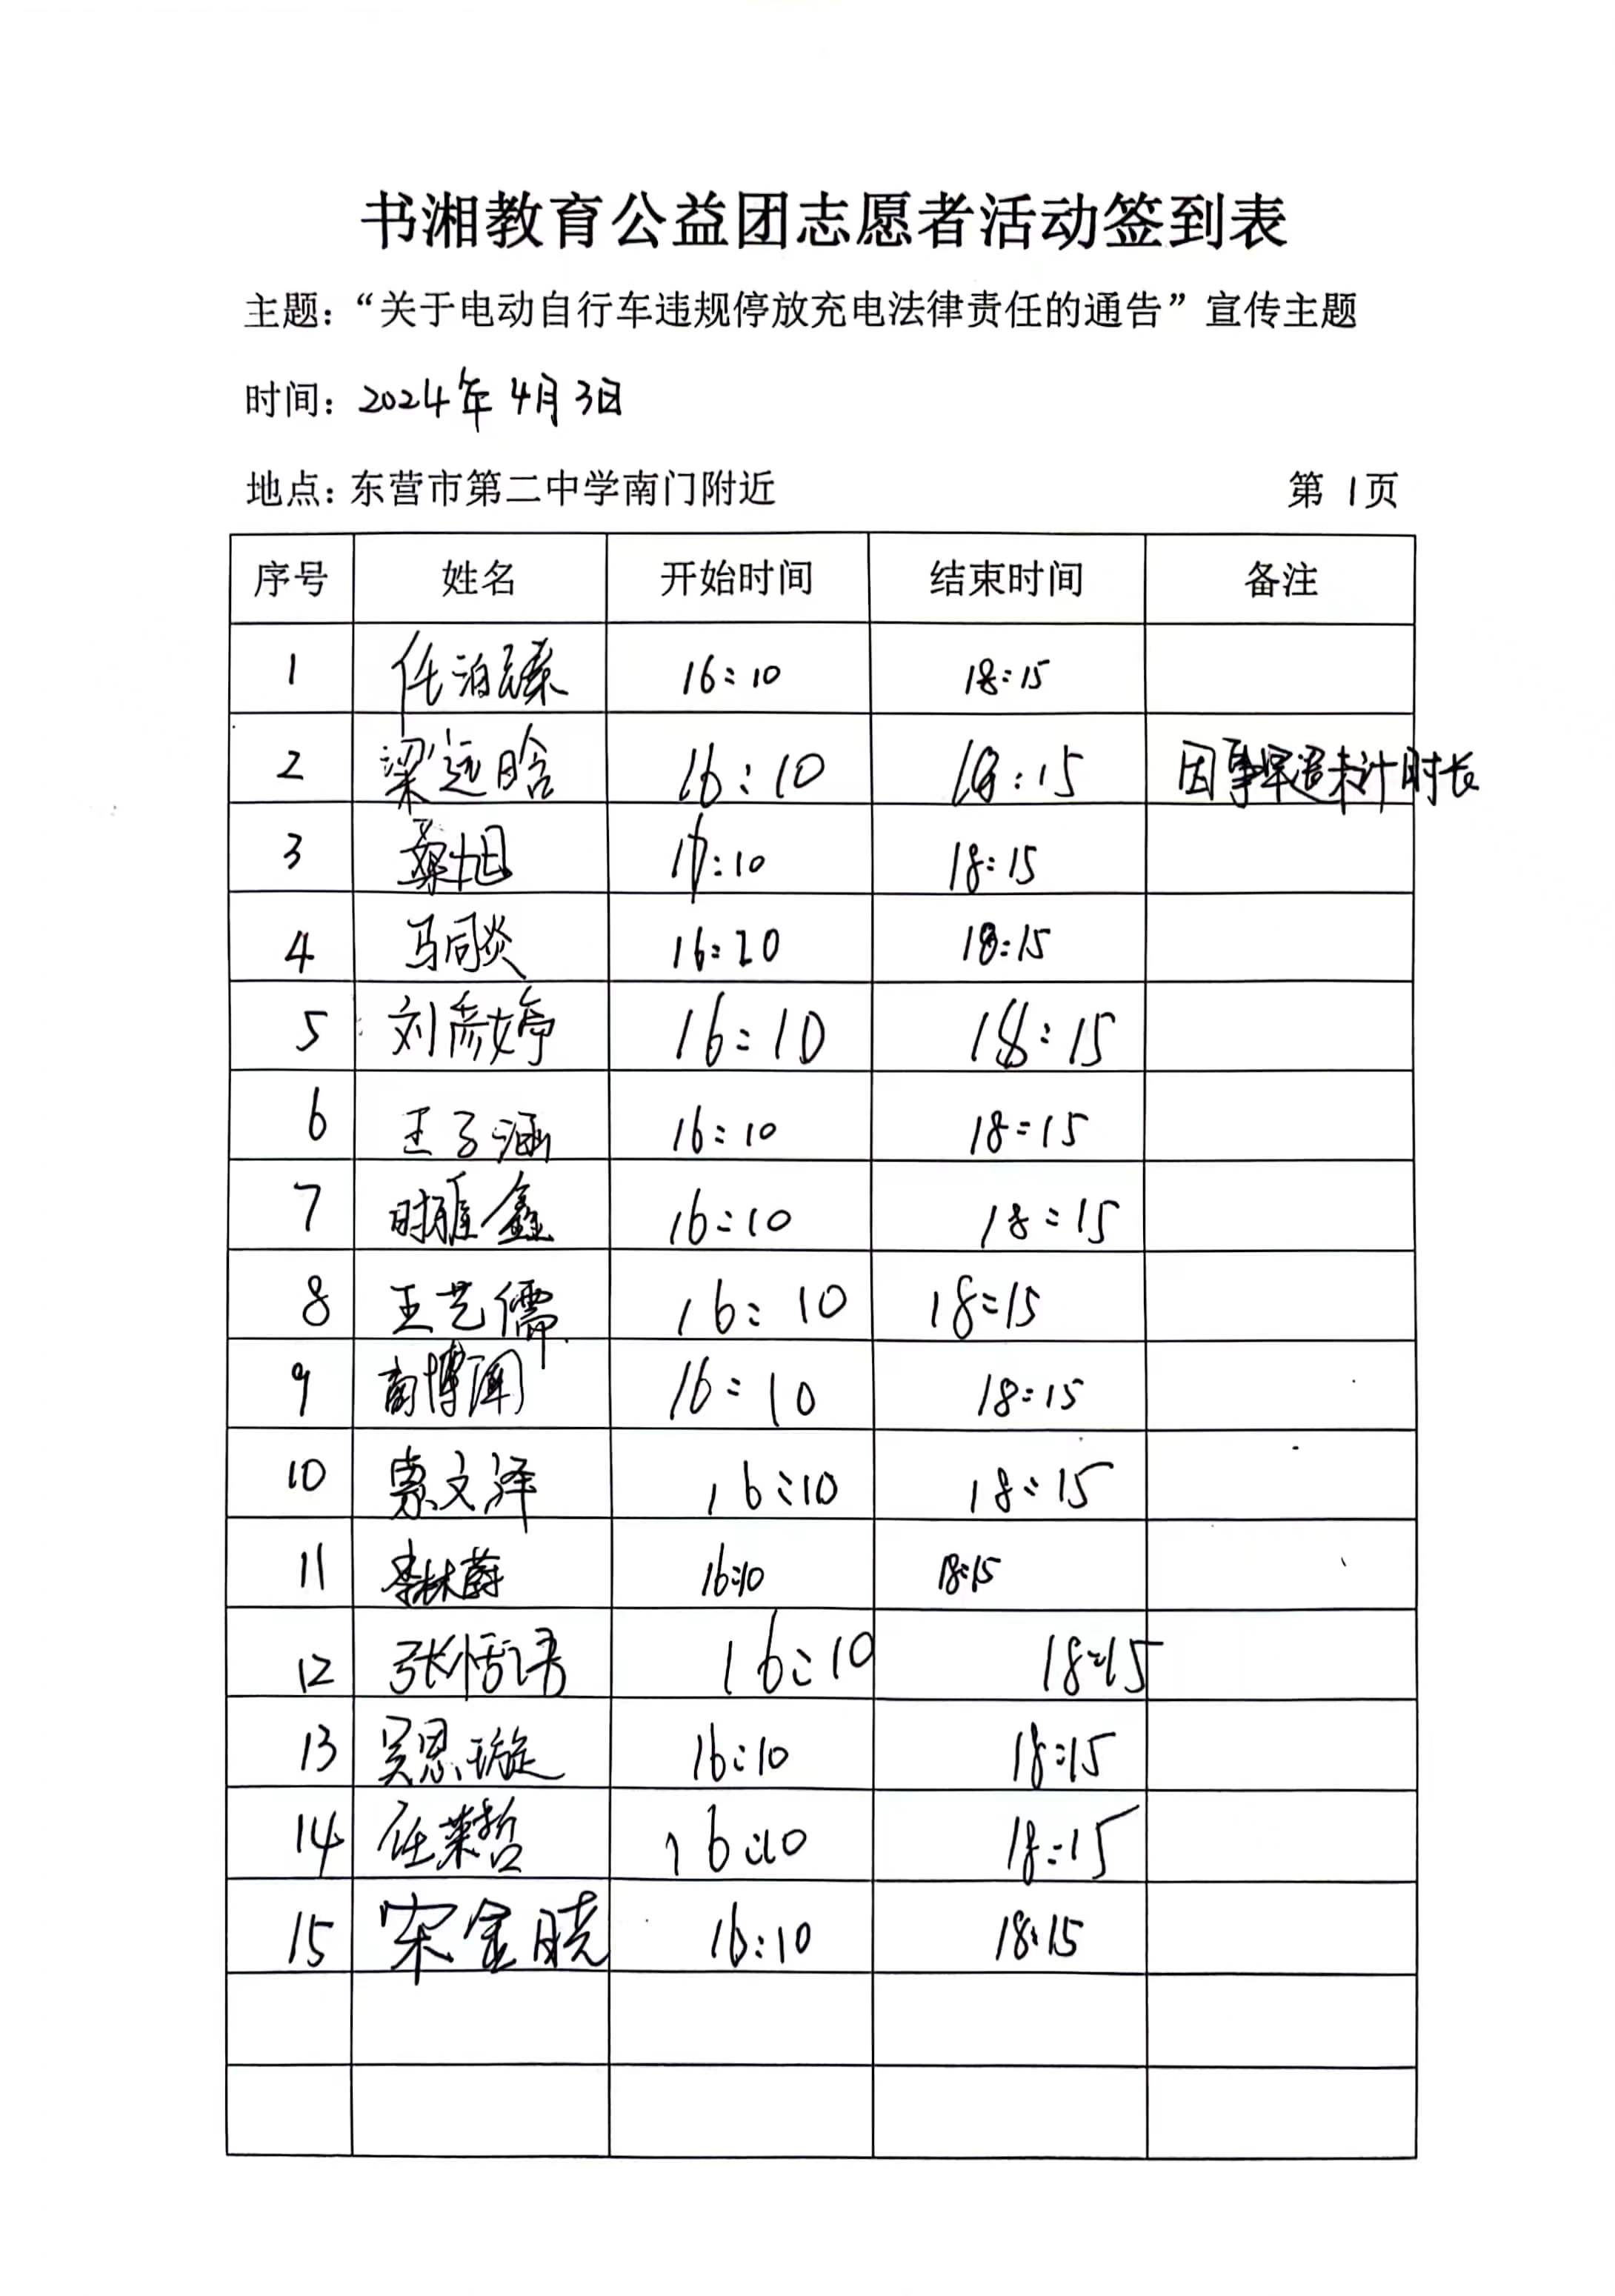 书湘教育公益团志愿者活动签到表
主题：“关于电动自行车违规停放充电法律责任的通告”宣传主题
时间：2024年4月3日
地点：东营市第二中学南门附近 第1页
序号 姓名 开始时间 结束时间 备注
1 任泊 16:10 18:15
2 梁远晗 16:10 18:15 因事早退未计时长
3 桑旭 :10 18:15
4 马同炎 16:20 18:15
5 刘彦婷 16:10 18:15
6 王子涵 16:10 18:15
7 时雅鑫 16:10 18:15
8 王艺儒 16:10 18:15
9 商博闻 16:10 18:15
10 文泽 16:10 18:15
11 李林蔚 16:10 18:15
12 张恬语 16:10 18:15
13 吴恩璇 16:10 18:15
14 任莱哲 16:10 18:15
15 宋金晓 16:10 18:15